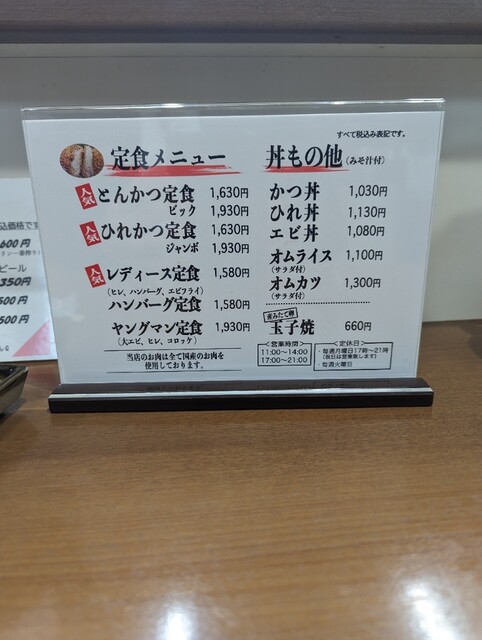 すべて税込み表記です。
定食メニュー
人気 とんかつ定食 1,630円
ビック 1,930円
人気 ひれかつ定食 1,630円
ジャンボ 1,930円
人気 レディース定食 1,580円
(ヒレ、ハンバーグ、エビフライ)
ハンバーグ定食 1,580円
ヤングマン定食 1,930円
(大エビ、ヒレ、コロッケ)
当店のお肉は全て国産のお肉を
使用しております。
丼もの他(みそ汁付)
かつ丼 1,030円
ひれ丼 1,130円
エビ丼 1,080円
オムライス 1,100円
(サラダ付)
オムカツ 1,300円
(サラダ付)
産みたて卵
玉子焼 660円
<営業時間>
11:00〜14:00
17:00〜21:00
<定休日>
・毎週月曜日17時〜21時
(祝日は営業致します)
・毎週火曜日
込価格です
600円
ビール
350円
500円
500円